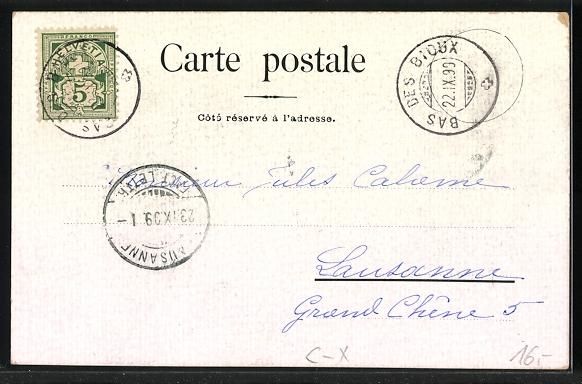 HELVETIA
FRANCO
5
BAS DES BIOUX
22.IX.99
Carte postale
Côté réservé à l'adresse.
Monsieur Jules Cahorne
LAUSANNE
23.IX.99. I
Lausanne
Grand Chêne 5
C-X
16.-